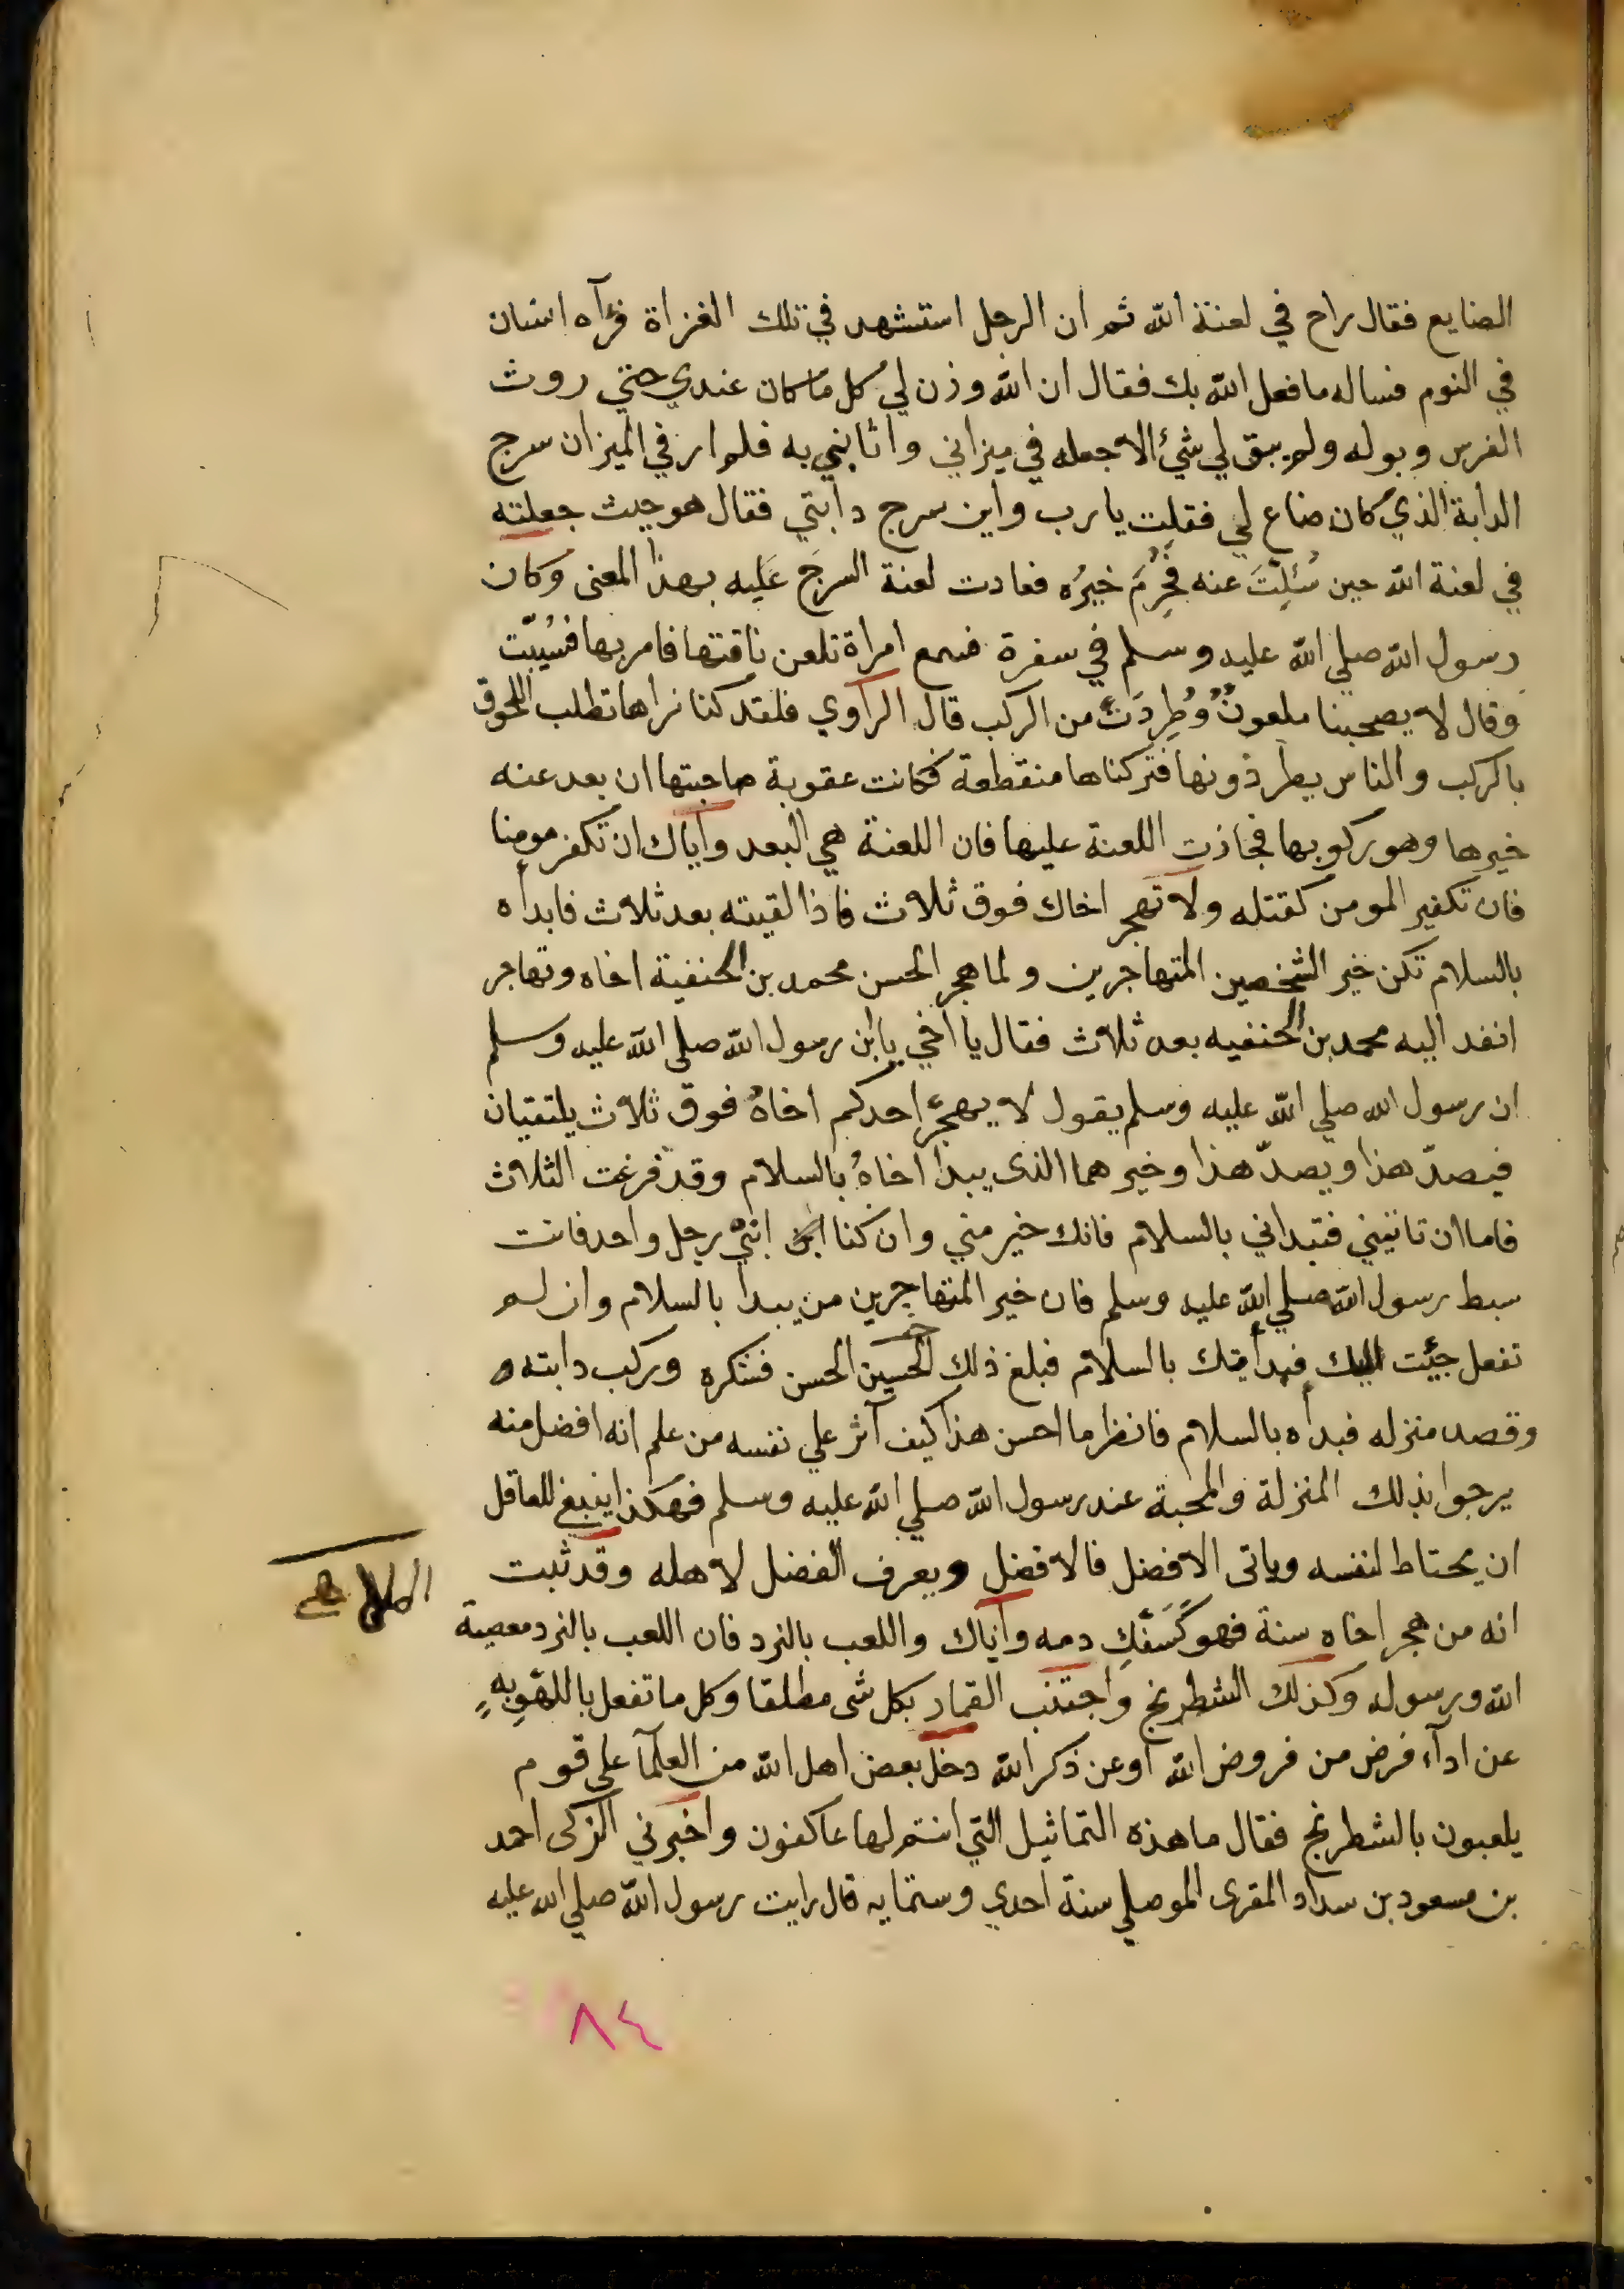 الضايع فقال راح في لعنة الله ثم ان الرجل استشهد في تلك الغزاة فرآه انسان
في النوم فساله ما فعل الله بك فقال ان الله وزن لي كل ما كان عندي حتي روث
الفرس وبوله ولم يبق لي شئ الا جعله في ميزاني واثابني به فلم ار في الميزان سرج
الدابة الذي كان ضاع لي فقلت يا رب واين سرج دابتي فقال هو حيث جعلته
في لعنة الله حين سُئِلْتَ عنه فحُرِمَ خيرُه فعادت لعنة السرجَ عَلَيه بهذا المعنى وكان
رسول الله صلي الله عليه وسلم في سفرة فسمع امراة تلعن ناقتها فامر بها فسُيِّبت
وقال لا يصحبنا ملعونٌ وَطُرِدَتْ من الركب قال الراوي فلقد كنا نراها تطلب اللحوق
بالركب والناس يطردونها فتركناها منقطعة فكانت عقوبة صاحبتها ان بعد عنه
خيرها وهو ركوبها فجازت اللعنة عليها فان اللعنة هي البعد واياك ان تكفر مومنا
فان تكفير المومن كقتله ولا تهجر اخاك فوق ثلاث فاذا لقيته بعد ثلاث فابدأه
بالسلام تكن خير الشخصين المتهاجرين ولما هجر الحسن محمد بن الحنفية اخاه وتهاجر
انفد اليه محمد بن الحنفيه بعد ثلاث فقال يا اخي يا ابن رسول الله صلى الله عليه وسلم
ان رسول الله صلي الله عليه وسلم يقول لا يهجر احدكم اخاهُ فوق ثلاث يلتقيان
فيصدّ هذا ويصدّ هذا وخيرهما الذى يبدا اخاهُ بالسلام وقد فرغت الثلاث
فاما ان تاتيني فتبداني بالسلام فانك خير مني وان كنا ابن رجل واحد فانت
سبط رسول الله صلي الله عليه وسلم فان خير المتهاجرين من يبدأ بالسلام وان لم
تفعل جئت اليك فبدأتك بالسلام فبلغ ذلك الحسين الحسن فشكره وركب دابته و
وقصد منزله فبدأه بالسلام فانظر ما احسن هذا كيف آثر علي نفسه من علم انه افضل منه
يرجوا بذلك المنزلة والمحبة عند رسول الله صلي الله عليه وسلم فهكذا ينبغي للعاقل
ان يحتاط لنفسه وياتى الافضل فالافضل ويعرف الفضل لاهله وقد ثبت
انه من هجر اخاه سنة فهو كَسَفْكِ دمه واياك واللعب بالنرد فان اللعب بالنرد معصية
الله ورسوله وكذلك الشطرنج واجتنب القمار بكل شى مطلقا وكل ما تفعل باللهو به
عن ادآء فرض من فروض الله او عن ذكر الله دخل بعض اهل الله من العلمآ علي قوم
يلعبون بالشطرنج فقال ما هذه التماثيل التي انتم لها عاكفون واخبرني الزكى احمد
بن مسعود بن سداد المقرى الموصلي سنة احدي وستمايه قال رايت رسول الله صلي الله عليه
٨٤